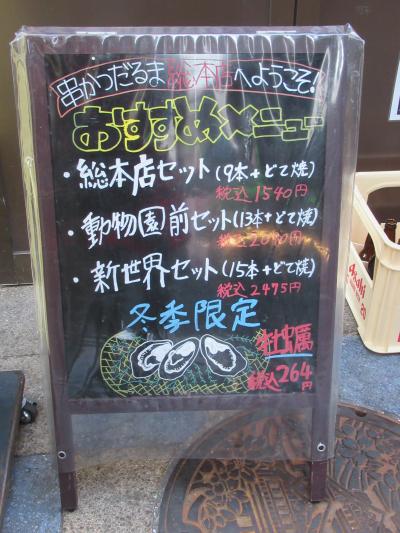 串かつだるま総本店へようこそ!
おすすめメニュー
・総本店セット(9本+どて焼)
税込1540円
・動物園前セット(13本+どて焼)
税込2090円
・新世界セット(15本+どて焼)
税込2475円
冬季限定
牡蠣
税込264円
Asahi